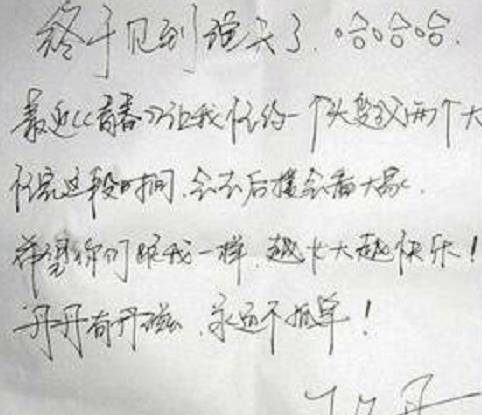 终于见到韩天了.哈哈哈.
最近《青春》让我忙的一个头变成两个大
忙完这段时间.会不后援会看大家.
希望你们跟我一样.越长大越快乐!
丹丹有丹磁.永远不孤单!